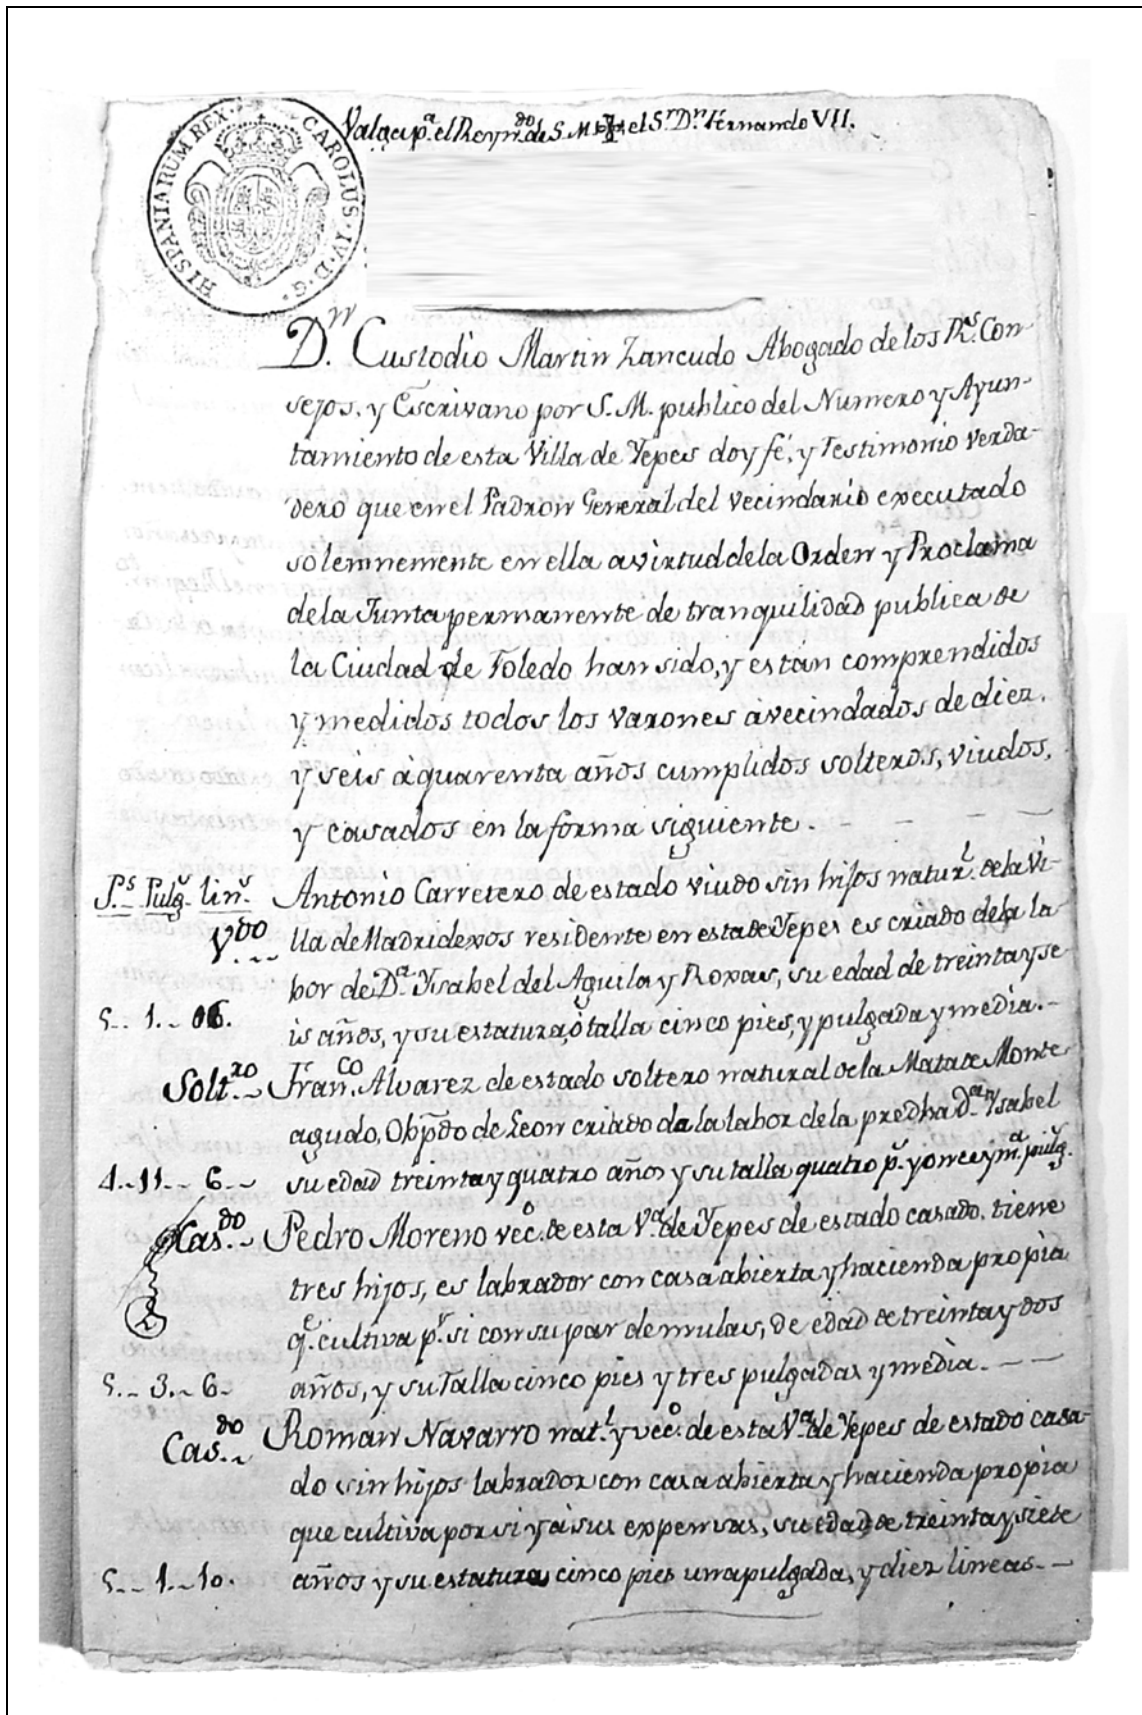 HISPANIARUM REX. CAROLUS. IV. D. G.
Valga pª. el Reynᵈᵒ. de S. M. el Sʳ. Dⁿ. Fernando VII.
Dⁿ. Custodio Martin Zancudo Abogado de los Rˢ. Con-
sejos, y Escrivano por S. M. publico del Numero y Ayun-
tamiento de esta Villa de Yepes doy fé, y Testimonio verda-
dero que en el Padron General del vecindario executado
solemnemente en ella a virtud de la Orden y Proclama
de la Junta permanente de tranquilidad publica de
la Ciudad de Toledo han sido, y están comprendidos
y medidos todos los varones avecindados de diez,
y seis à quarenta años cumplidos solteros, viudos,
y casados en la forma siguiente. - - - -
Pˢ. Pulgˢ. linˢ. Antonio Carretero de estado viudo sin hijos naturˡ. de la Vi-
Vᵈᵒ.. lla de Madridexos residente en esta de Yepes es criado de la la-
bor de Dª. Ysabel del Aguila y Roxas, su edad de treinta y se-
5.. 1.. 06. is años, y su estatura, ò talla cinco pies, y pulgada y media. -
Soltʳᵒ.. Franᶜᵒ. Alvarez de estado soltero natural de la Mata de Monte
agudo, Obp̄do de Leon criado de la labor de la predha Dª. Ysabel
4.. 11.. 6.. su edad treinta y quatro años y su talla quatro p. y once y mª. pulg.
Casᵈᵒ.. Pedro Moreno vecº. de esta Vª. de Yepes de estado casado, tiene
tres hijos, es labrador con casa abierta y hacienda propia
qᵉ. cultiva pʳ. si con su par de mulas, de edad de treinta y dos
5.. 3.. 6. años, y su Talla cinco pies y tres pulgadas y media. - -
Casᵈᵒ.. Roman Navarro natˡ. y vecº. de esta Vª. de Yepes de estado casa-
do sin hijos labrador con casa abierta y hacienda propia
que cultiva por si y à sus expensas, su edad de treinta y siete
5.. 1.. 10. años y su estatura cinco pies una pulgada, y diez lineas. -